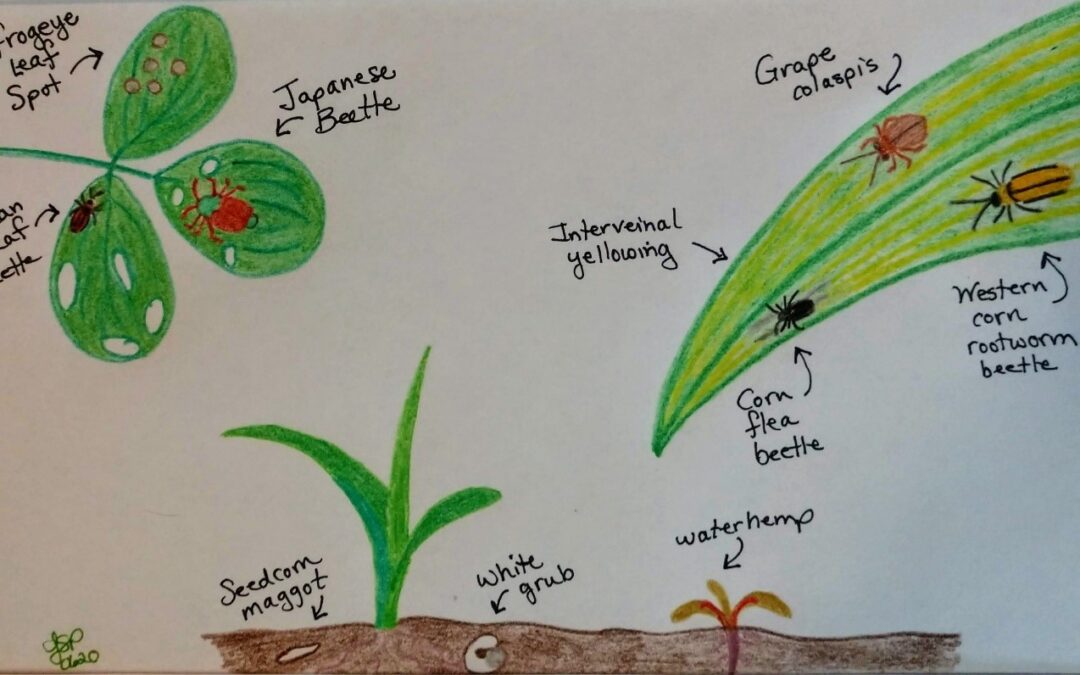 Frogeye
Leaf
Spot
Japanese
Beetle
an
af
etle
Grape
colaspis
Interveinal
yellowing
Western
corn
rootworm
beetle
Corn
flea
beetle
Seedcorn
maggot
white
grub
waterhemp
0620